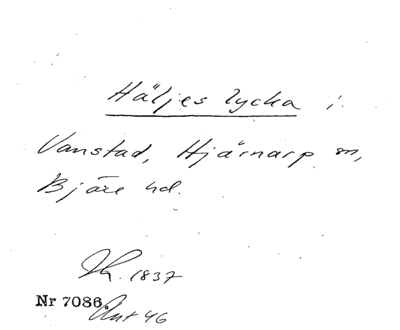 Häljes lycka i
Vanstad, Hjärnarp sn,
Bjäre hd.
Lh. 1837
Nr 7086. Ant 46